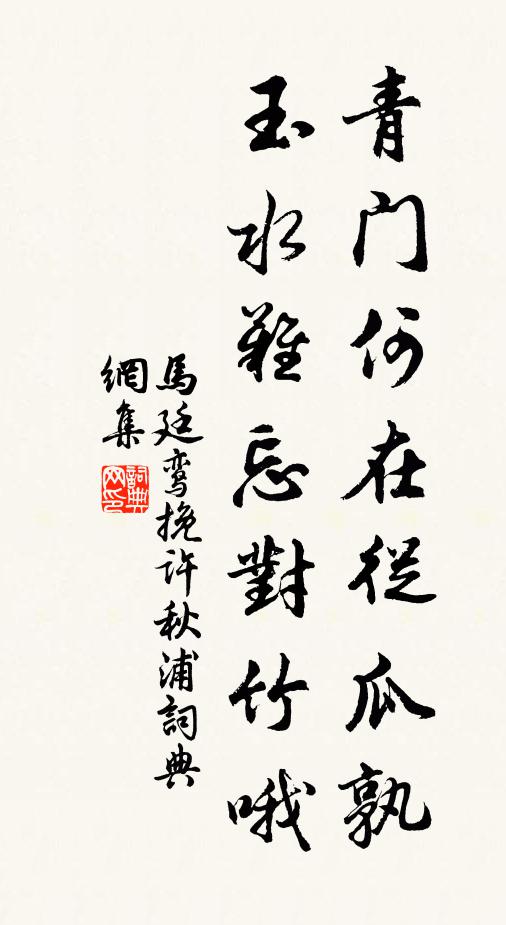 青門何在從瓜孰
玉水難忘對竹哦
馬廷鸾挽许秋浦詞典
網集
詞典
网印